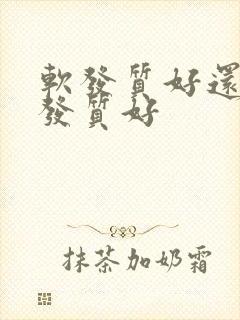 軟發質好還
發質好
抹茶加奶霜